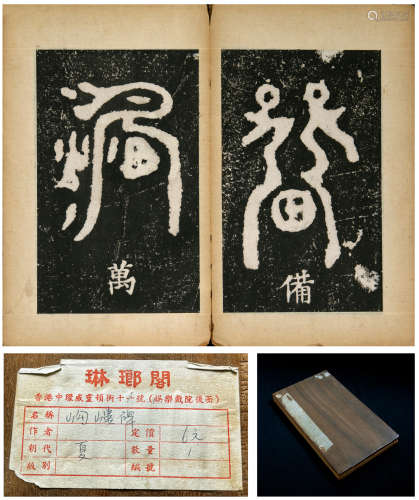 萬
備
琳瑯閣
香港中環威靈頓街十一號(娛樂戲院後面)
名稱 岣嶁碑
作者 定價 6元
朝代 夏 數量 1
級別 編號